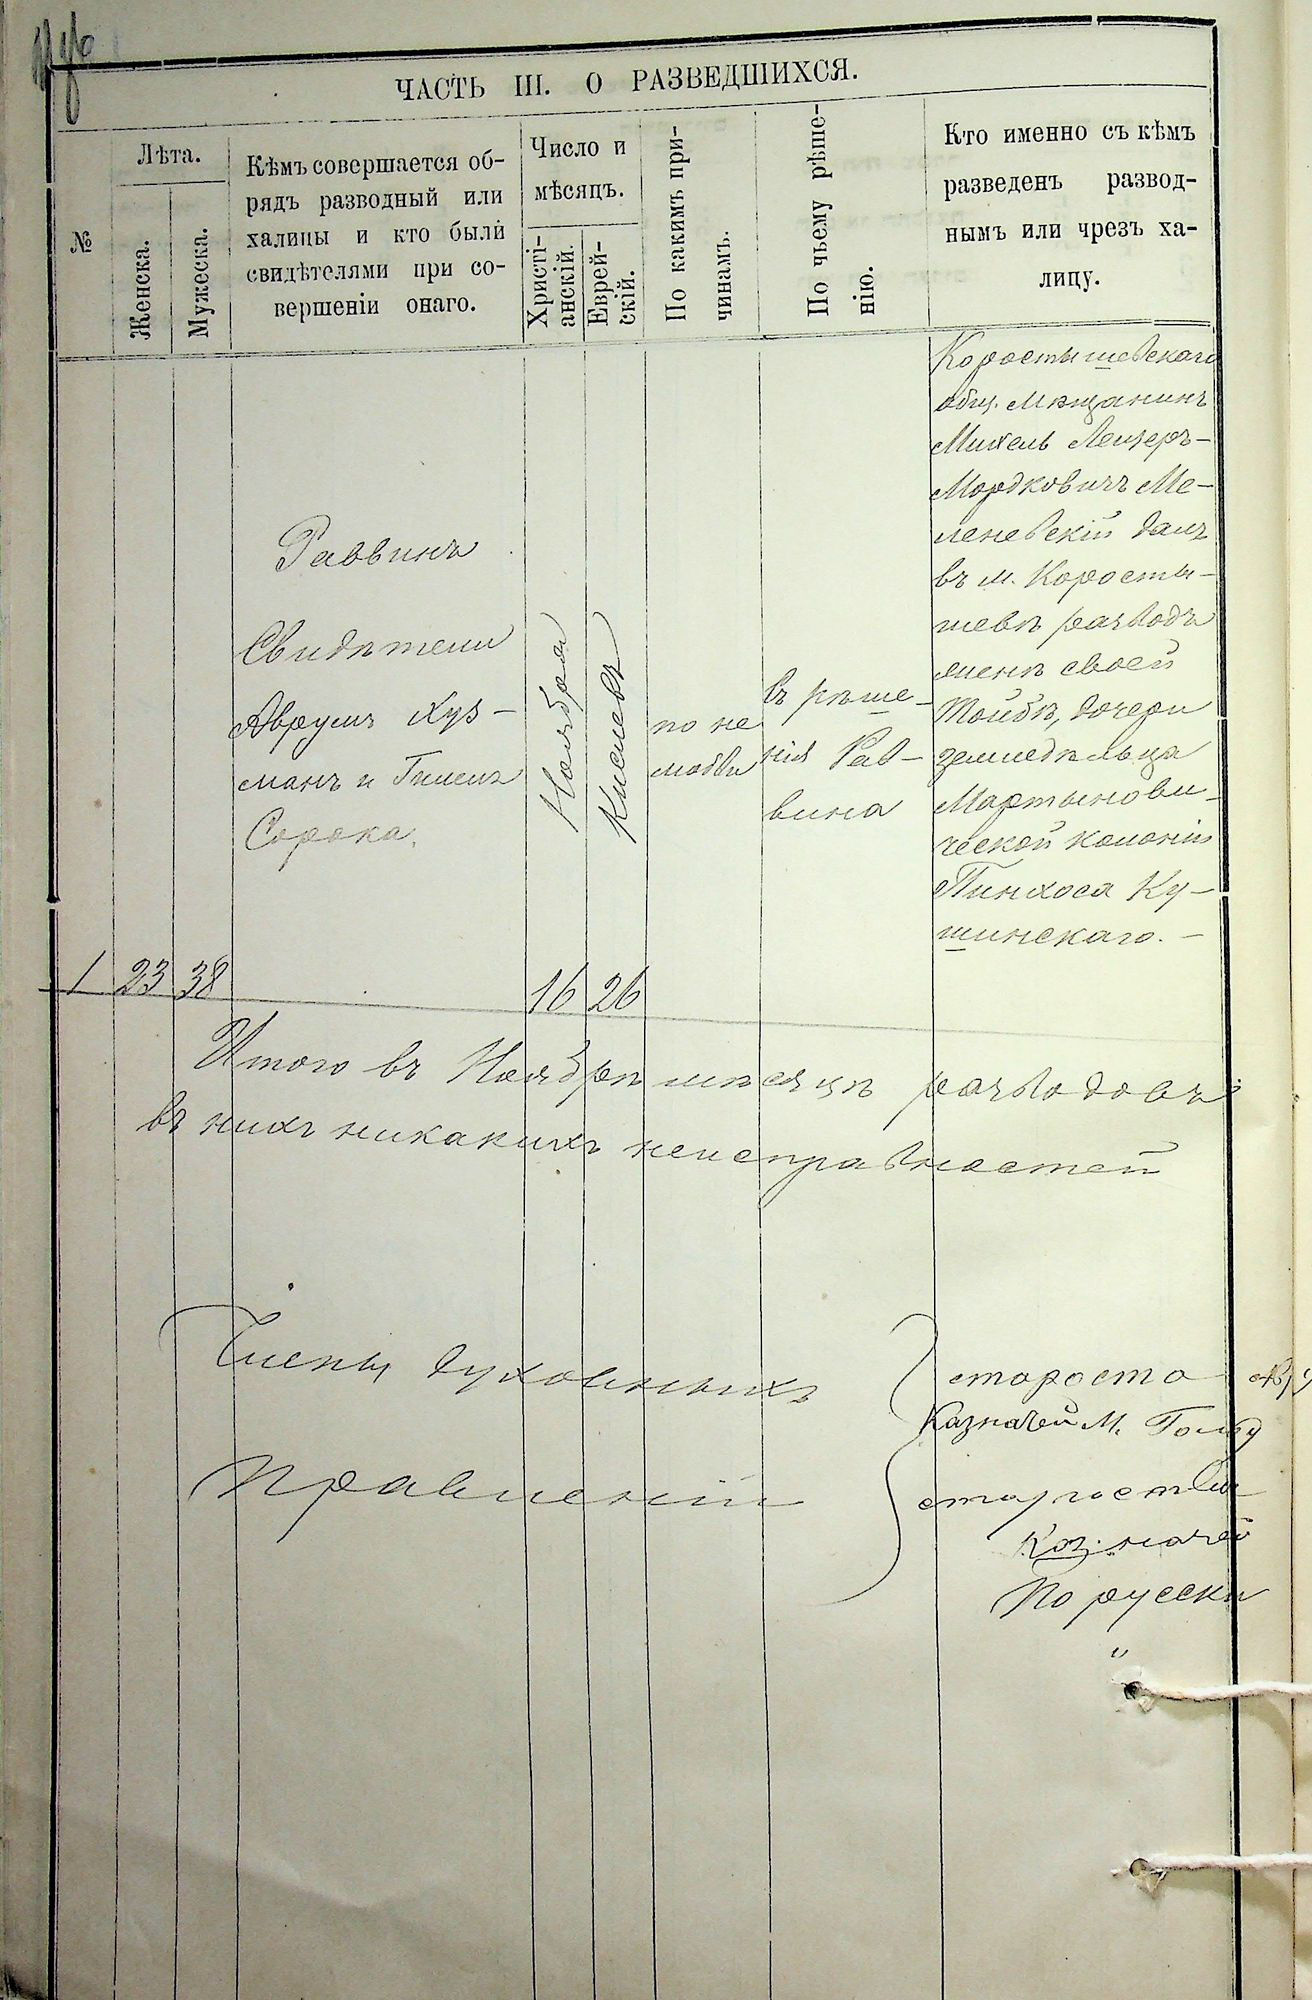 ЧАСТЬ III. О РАЗВЕДШИХСЯ.
№
Лѣта.
Женска.
Мужеска.
Кѣмъ совершается об-
рядъ разводный или
халицы и кто были
свидѣтелями при со-
вершеніи онаго.
Число и
мѣсяцъ.
Христі-
анскій.
Еврей-
скій.
По какимъ при-
чинамъ.
По чьему рѣше-
нію.
Кто именно съ кѣмъ
разведенъ развод-
нымъ или чрезъ ха-
лицу.
1
23
38
Раввинъ
Свидѣтели
Аврумъ Хуз-
манъ и Гилель
Сорока.
Ноября
16
Кислевъ
26
по не
любви
въ рѣше-
нія Рав-
вина
Коростышевскаго
общ. мѣщанинъ
Михель Лейзеръ-
Мордковичъ Ме-
леневскій далъ
въ м. Коросты-
шевѣ разводъ
женѣ своей
Тойбѣ, дочери
земледѣльца
Мартынови-
ческой колоніи
Пинхоса Ку-
шинскаго. -
Итого въ Ноябрѣ мѣсяцѣ разводовъ
въ нихъ никакихъ неисправностей
Члены духовныхъ
Правленій
староста
Казначей М. Гольд
староста
Казначей
По русски
"